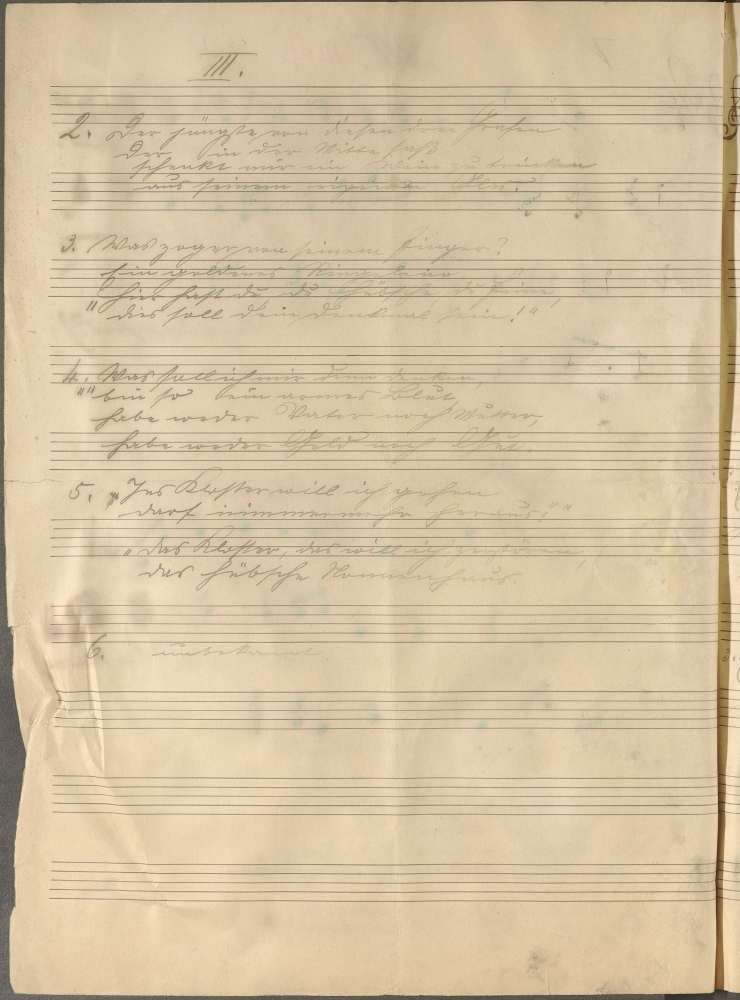 III.
2. Der jüngste von diesen drei Grafen
der in der Mitte saß
schenkt mir ein Wein zu trinken
aus seinem eigenen Glas.
3. Was zoger von seinem Finger?
Ein goldenes Ringelein
"hier hast du, du Hübsche, du Feine,
dies soll dein Denkmal sein!"
4. Was soll ich mir denn denken,
""bin so ein armes Blut,
habe weder Vater noch Mutter,
habe weder Geld noch Gut.
5. "Ins Kloster will ich gehen
darf nimmermehr heraus!""
"das Kloster, das will ich
das hübsche Nonnenhaus.
6. unbekannt.